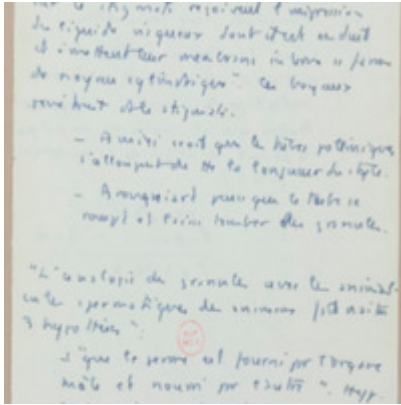 sur le stigmate reçoivent l'impression
du liquide visqueux dont il est enduit
et émettent leur membrane interne sous forme
de noyau cylindrique". Ces boyaux
pénètrent le stigmate.
- Amici croit que les tubes polliniques
s'allongent de la longueur du style.
- Brongniart pense que le tube se
rompt et laisse tomber des granules.
"L'analogie des granules avec les animal-
cules spermatiques des animaux fit naître
3 hypothèses":
1 "que le germe est fourni par l'organe
mâle et nourri par l'autre". Hyp.